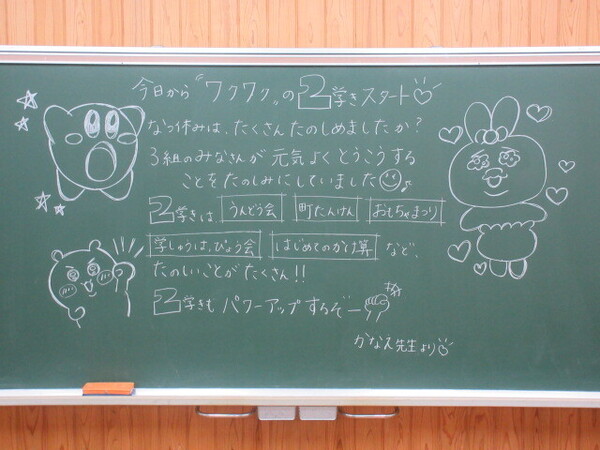 今日から“ワクワク”の2学きスタート
なつ休みは、たくさんたのしめましたか？
3組のみなさんが元気よくとうこうする
ことをたのしみにしていました
2学きは うんどう会 町たんけん おもちゃまつり
学しゅうはっぴょう会 はじめてのかけ算 など、
たのしいことがたくさん!!
2学きもパワーアップするぞー
かなえ先生より